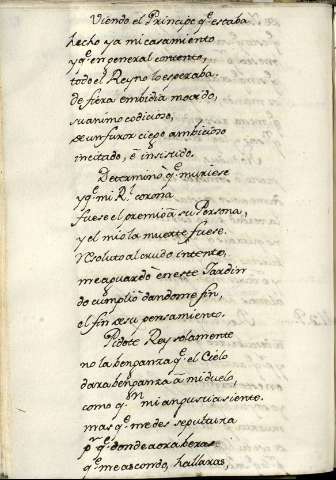 Viendo el Principe q̃ estaba
hecho ya mi casamiento
y q̃ en general contento,
todo el Reyno lo esperaba.
de fiera embidia mouido,
su animo codicioso,
de un furor ciego ambicioso
incitado, e insistido.
Determinò q̃ muriese
y q̃ mi Rl corona
fuese el premio a su Persona,
y el mio la muerte fuese.
Resoluto al crudo intento,
me aguardò en este Jardin
do cumpliò dandome fin,
el fin de su pensamiento.
Pidote Rey solamente
no la benganza q̃ el Cielo
dara benganza à mi duelo,
como q̃n mi angustia siente.
mas q̃ me des sepultura
pr q̃ donde aora beras
q̃ me ascondo, hallaras,